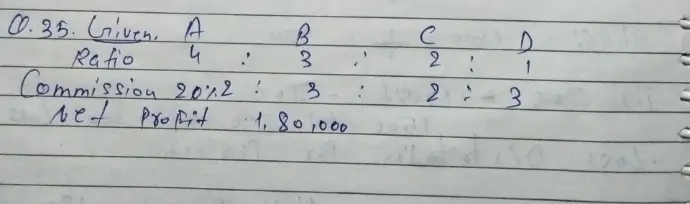 Q.35. Given. A B C D
Ratio 4 : 3 : 2 : 1
Commission 20% 2 : 3 : 2 : 3
Net Profit 1,80,000